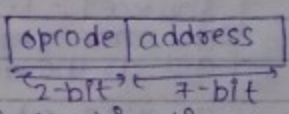 opcode address
2-bit 7-bit